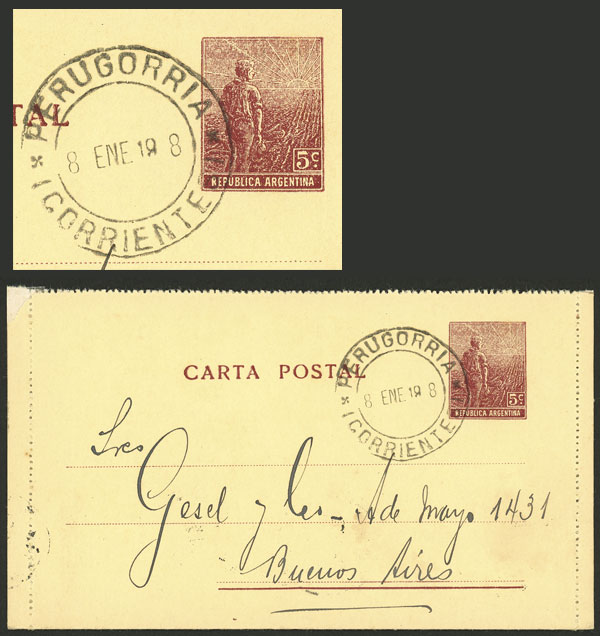 TAL
PERUGORRIA
8 ENE 19 8
(CORRIENTE
5c.
REPUBLICA ARGENTINA
CARTA POSTAL
PERUGORRIA
8 ENE 19 8
(CORRIENTE
5c.
REPUBLICA ARGENTINA
Sres
Gesel y Cco - A de Mayo 1431
Buenos Aires